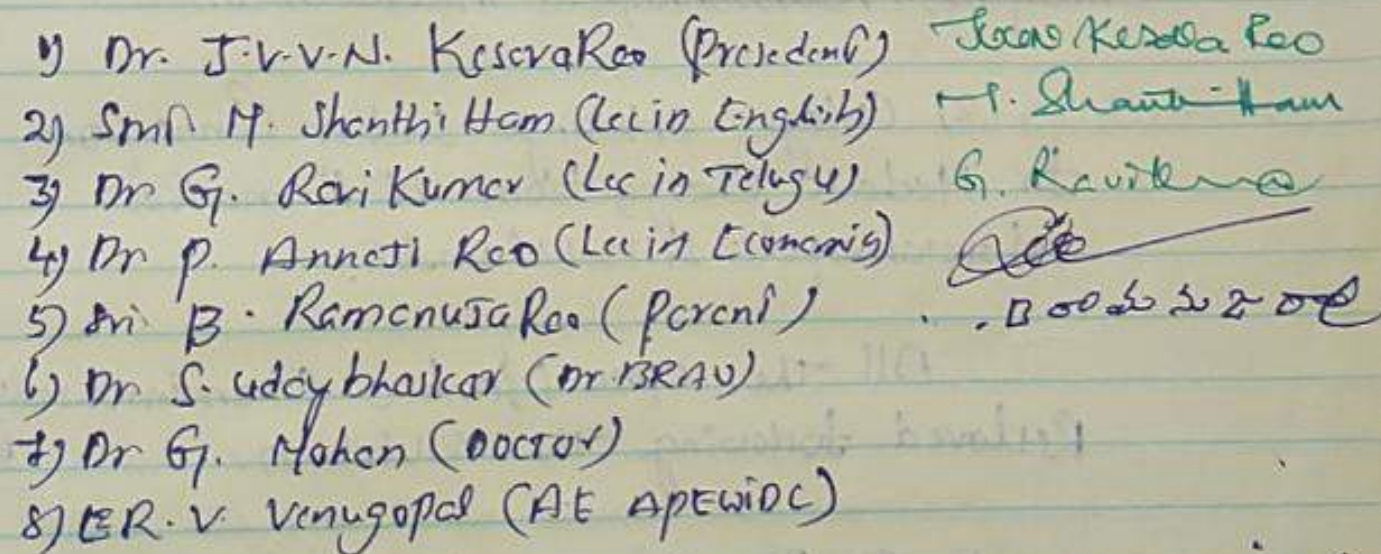 1) Dr. J.V.V.N. KesavaRao (President) Kesava Rao
2) Smt M. Shanthi Ham (Lec in English) M. Shanthi Ham
3) Dr G. Ravi Kumar (Lec in Telugu) G. Ravikuma
4) Dr P. Annaji Rao (Lec in Economis)
5) Sri B. RamanuJaRao (Parent) B రామానుజ రావు
6) Dr S. Udaybhaskar (Dr. BRAU)
7) Dr G. Mohan (DOCTOr)
8) ER. V. Venugopal (AE APEWiDC)